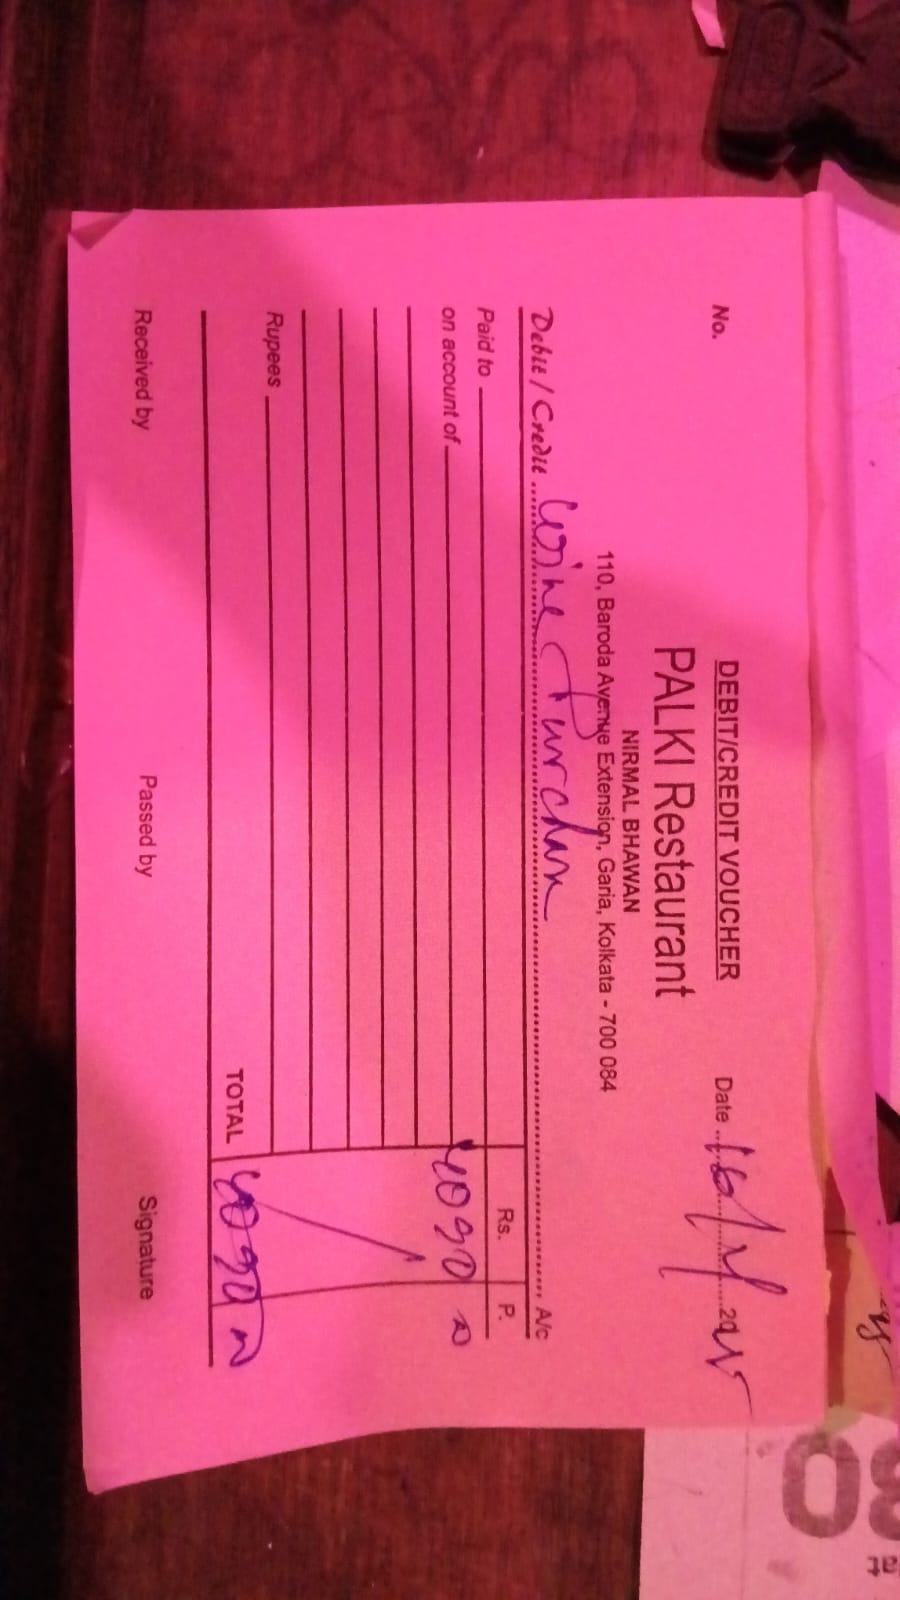 DEBIT/CREDIT VOUCHER
No.
Date
PALKI Restaurant
NIRMAL BHAWAN
110, Baroda Avenue Extension, Garia, Kolkata - 700 084
Debit / Credit Wine Purchase A/c
Paid to Rs. P.
on account of
Rupees
TOTAL
Received by Passed by Signature
80